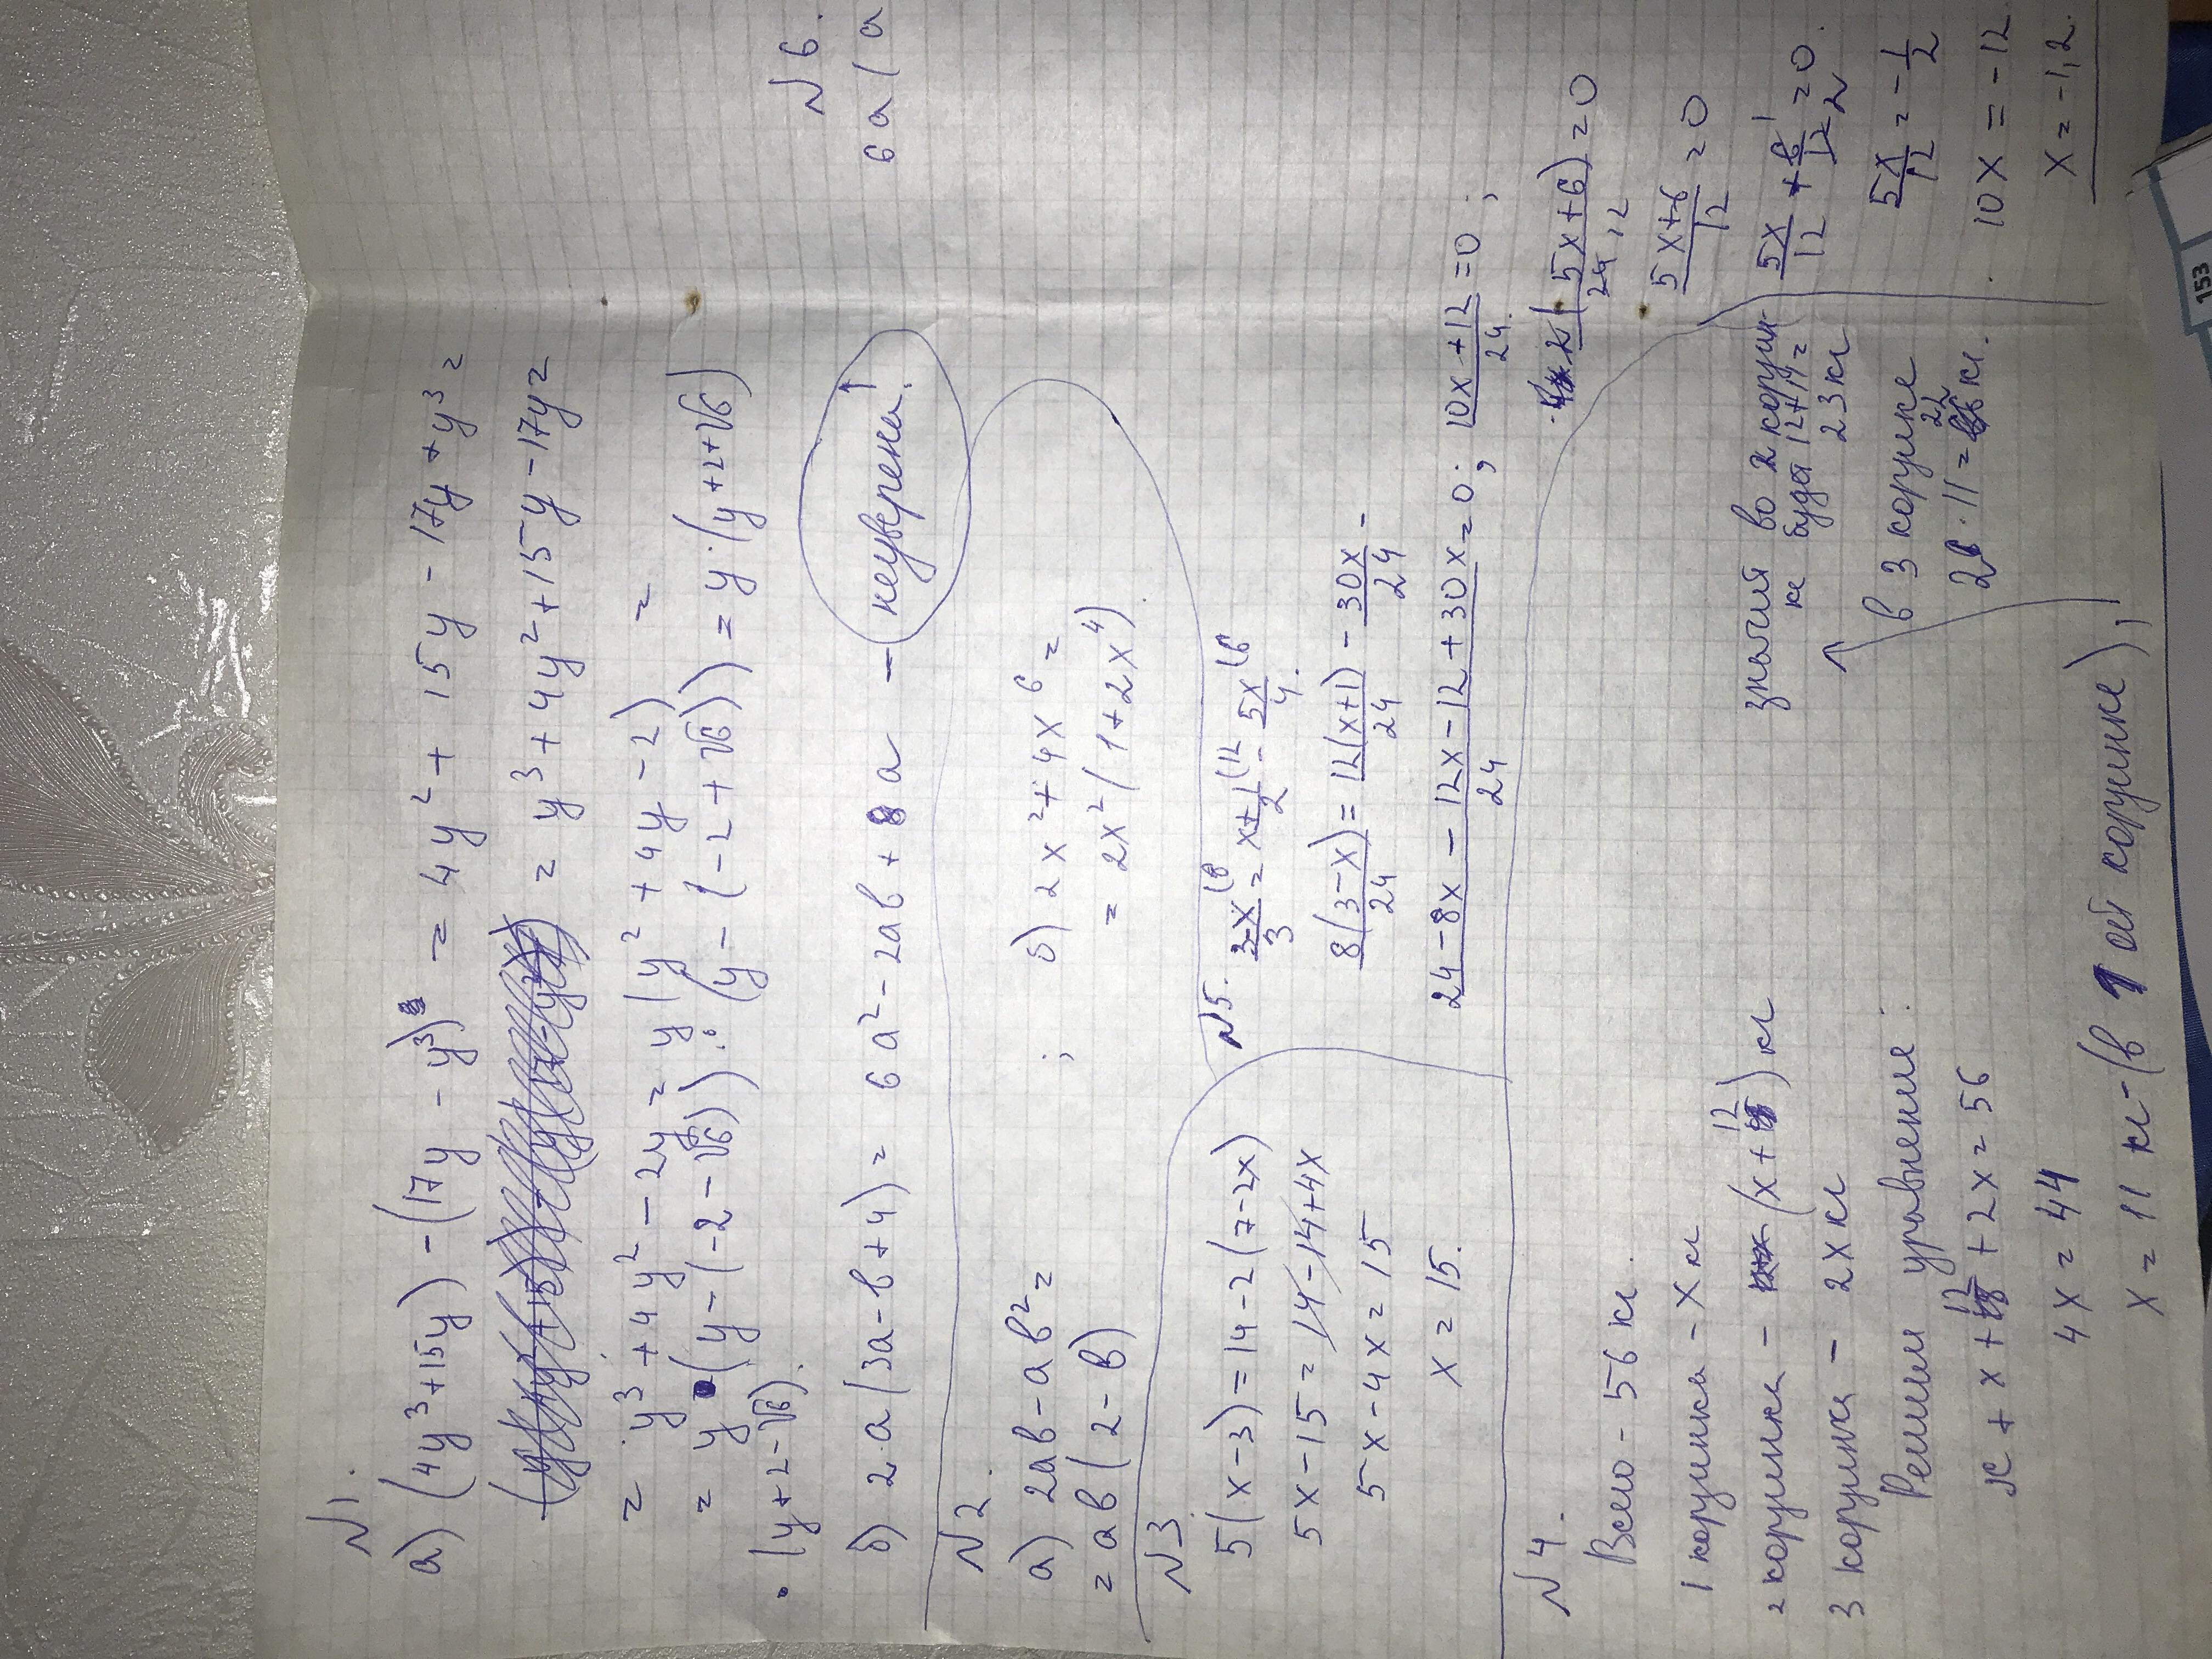 №1.
а) (4y³+15y) - (17y - y³) = 4y² + 15y - 17y + y³ =
= y³ + 4y² + 15y - 17y =
= y³ + 4y² - 2y = y (y² + 4y - 2) =
= y (y - (-2 - √6)) · (y - (-2 + √6)) = y · (y+2+√6)
· (y+2-√6).
б) 2a (3a - b + 4) = 6a² - 2ab + 8a - неуверена!
№2.
а) 2ab - ab² = ; б) 2x² + 4x⁶ =
= ab (2 - b) = 2x² (1+2x⁴).
№3
5(x-3) = 14 - 2(7-2x)
5x - 15 = 14 - 14 + 4x
5x - 4x = 15
x = 15.
№5. 3-x/3 (8 = x+1/2 (12 - 5x/4 (6.
8(3-x)/24 = 12(x+1)/24 - 30x/24 -
24 - 8x - 12x - 12 + 30x/24 = 0; 10x + 12/24 = 0;
2(5x+6)/24 12 = 0
5x+6/12 = 0
5x/12 + 6 1/12 2 = 0.
5x/12 = - 1/2
10x = -12
x = -1,2.
№4.
Всего - 56 кг.
1 корзинка - x кг
2 корзинка - (x + 12) кг
3 корзинка - 2x кг
Решим уравнение:
x + x + 12 + 2x = 56
4x = 44
x = 11 кг - (в 1 ой корзинке),
значит во 2 корзин-
ке будет 12+11=
23 кг
в 3 корзинке
2 · 11 = 22 кг.
№6.
6a (a
153